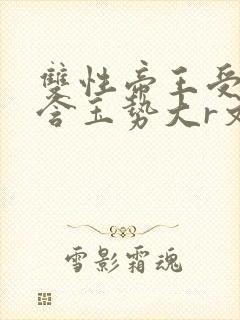 雙性帝王受
含玉勢大r文
雪影霜魂